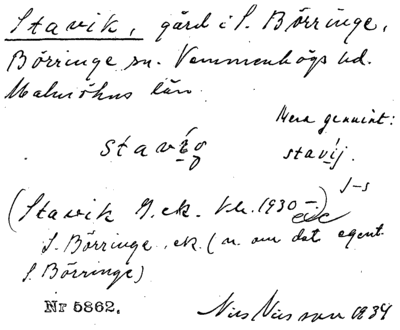 Stavik, gård i S. Börringe,
Börringe sn. Vemmenhögs hd.
Malmöhus län
Mera genuint:
stavíg stavij.
J-s
(Stavik G. ek. Kbr. 1930-)
S. Börringe, ek. (n. om det egentl.
S. Börringe)
Nr 5862. Nils Nilsson 1934